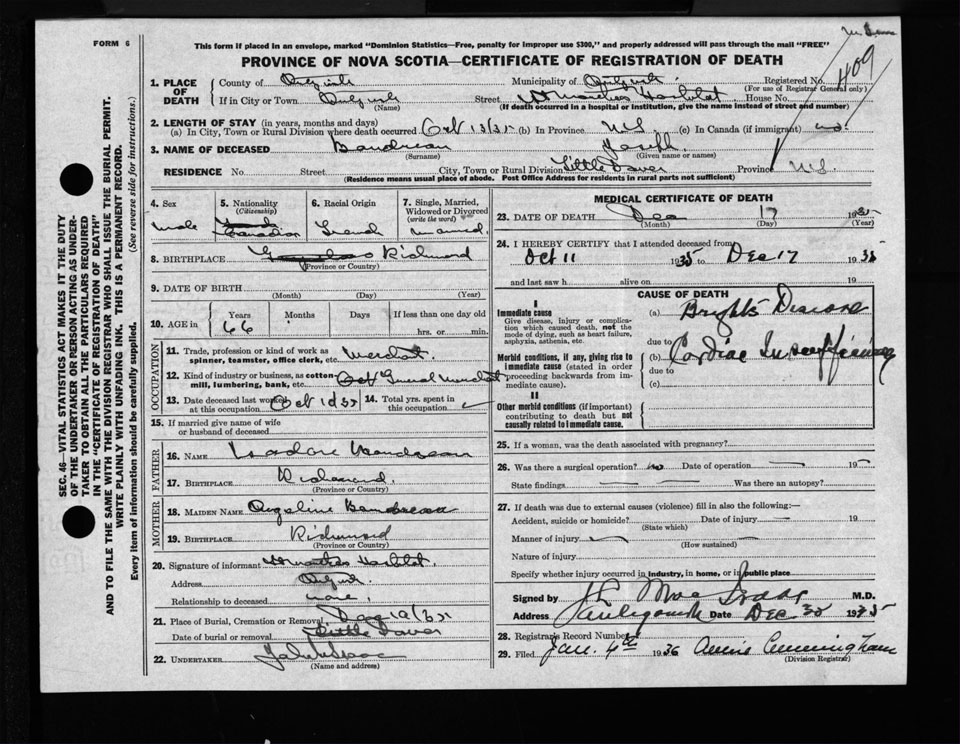 FORM 6
This form if placed in an envelope, marked "Dominion Statistics—Free, penalty for improper use $300," and properly addressed will pass through the mail "FREE"
PROVINCE OF NOVA SCOTIA—CERTIFICATE OF REGISTRATION OF DEATH
409
1. PLACE OF DEATH
County of
Municipality of
Registered No.
(For use of Registrar General only)
If in City or Town
(Name)
Street
St Marthas Hospital
House No.
(If death occurred in a hospital or institution, give the name instead of street and number)
2. LENGTH OF STAY (in years, months and days)
(a) In City, Town or Rural Division where death occurred Oct 13/35 (b) In Province NS (c) In Canada (if immigrant) no.
3. NAME OF DECEASED Boudreau Joseph
(Surname) (Given name or names)
RESIDENCE No. Street City, Town or Rural Division Little Dover Province NS
(Residence means usual place of abode. Post Office Address for residents in rural parts not sufficient)
4. Sex
male
5. Nationality
(Citizenship)
Canadian
6. Racial Origin
French
7. Single, Married, Widowed or Divorced
(write the word)
8. BIRTHPLACE Richmond
(Province or Country)
9. DATE OF BIRTH
(Month) (Day) (Year)
10. AGE in
Years
66
Months
Days
If less than one day old
hrs. or min.
OCCUPATION
11. Trade, profession or kind of work as spinner, teamster, office clerk, etc. Merchant.
12. Kind of industry or business, as cotton-mill, lumbering, bank, etc. General Merchant
13. Date deceased last worked at this occupation Oct
14. Total yrs. spent in this occupation
15. If married give name of wife or husband of deceased
FATHER
16. NAME Isadore Boudreau
17. BIRTHPLACE Richmond
(Province or Country)
MOTHER
18. MAIDEN NAME Angeline Boudreau
19. BIRTHPLACE Richmond
(Province or Country)
20. Signature of informant St Marthas Hospital.
Address
Relationship to deceased none.
21. Place of Burial, Cremation or Removal Dec 19/35
Date of burial or removal Little Dover
22. UNDERTAKER
(Name and address)
MEDICAL CERTIFICATE OF DEATH
23. DATE OF DEATH Dec 17 1935
(Month) (Day) (Year)
24. I HEREBY CERTIFY that I attended deceased from
Oct 11 1935 to Dec 17 1935
and last saw h alive on 19
CAUSE OF DEATH
I
Immediate cause
Give disease, injury or complication which caused death, not the mode of dying, such as heart failure, asphyxia, asthenia, etc.
(a) Brights Disease
due to
Morbid conditions, if any, giving rise to immediate cause (stated in order proceeding backwards from immediate cause).
(b) Cardiac Insufficiency
due to
(c)
II
Other morbid conditions (if important) contributing to death but not causally related to Immediate cause.
25. If a woman, was the death associated with pregnancy?
26. Was there a surgical operation? no Date of operation 19
State findings Was there an autopsy?
27. If death was due to external causes (violence) fill in also the following:—
Accident, suicide or homicide? Date of injury 19
(State which)
Manner of injury
(How sustained)
Nature of injury
Specify whether injury occurred in industry, in home, or in public place
Signed by M.D.
Address Antigonish Date Dec 30 1935
28. Registrar's Record Number
29. Filed Jan. 4th 1936 Annie Cunningham
(Division Registrar)
SEC. 46—VITAL STATISTICS ACT MAKES IT THE DUTY
OF THE UNDERTAKER OR PERSON ACTING AS UNDERTAKER TO OBTAIN ALL THE PARTICULARS REQUIRED
IN THE "CERTIFICATE OF REGISTRATION OF DEATH"
AND TO FILE THE SAME WITH THE DIVISION REGISTRAR WHO SHALL ISSUE THE BURIAL PERMIT.
WRITE PLAINLY WITH UNFADING INK. THIS IS A PERMANENT RECORD.
Every item of information should be carefully supplied. (See reverse side for instructions.)